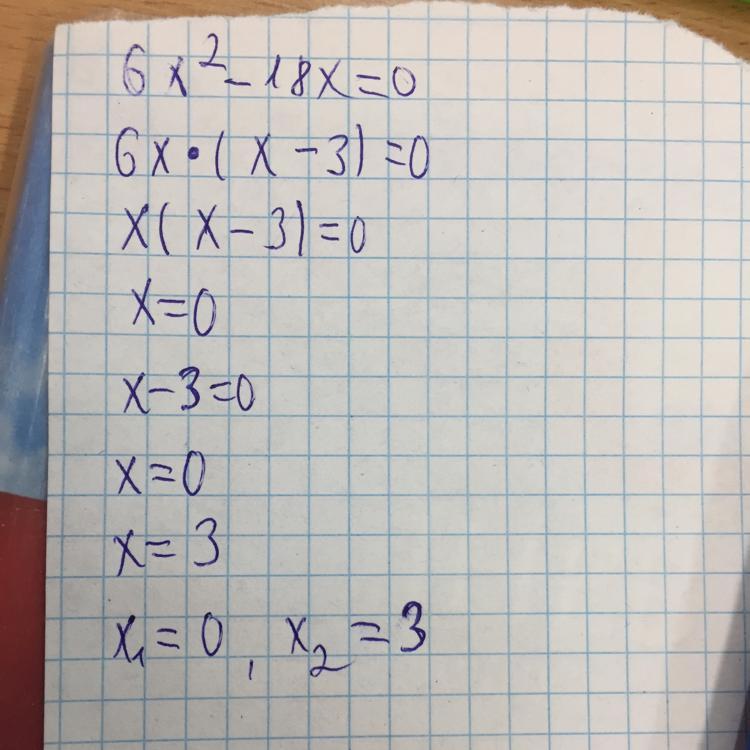 6x² - 18x = 0
6x • (x - 3) = 0
x(x - 3) = 0
x = 0
x - 3 = 0
x = 0
x = 3
x₁ = 0, x₂ = 3